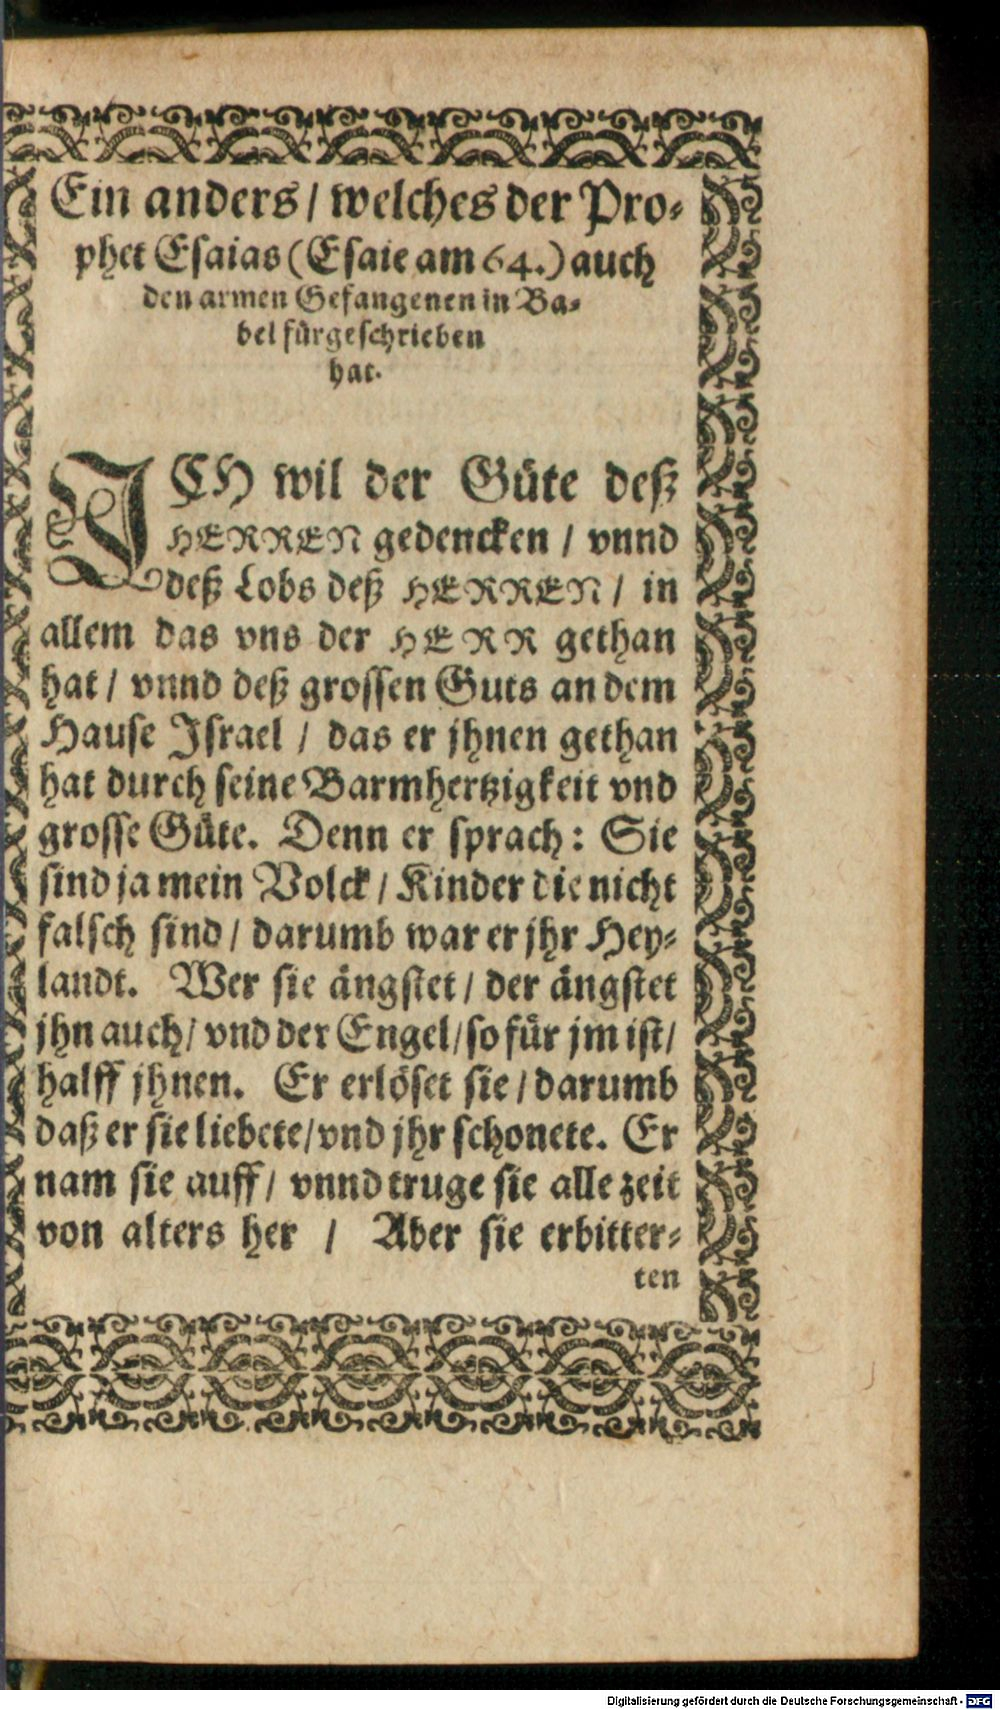 Ein anders / welches der Pro-
phet Esaias (Esaie am 64.) auch
den armen Gefangenen in Ba-
bel fürgeschrieben
hat.
ICH wil der Güte deß
HERREN gedencken / vnnd
deß Lobs deß HERREN / in
allem das vns der HERR gethan
hat / vnnd deß grossen Guts an dem
Hause Israel / das er jhnen gethan
hat durch seine Barmhertzigkeit vnd
grosse Güte. Denn er sprach: Sie
sind ja mein Volck / Kinder die nicht
falsch sind / darumb war er jhr Hey-
landt. Wer sie ängstet / der ängstet
jhn auch / vnd der Engel / so für jm ist /
halff jhnen. Er erlöset sie / darumb
daß er sie liebete / vnd jhr schonete. Er
nam sie auff / vnnd truge sie alle zeit
von alters her / Aber sie erbitter-
ten
Digitalisierung gefördert durch die Deutsche Forschungsgemeinschaft - DFG